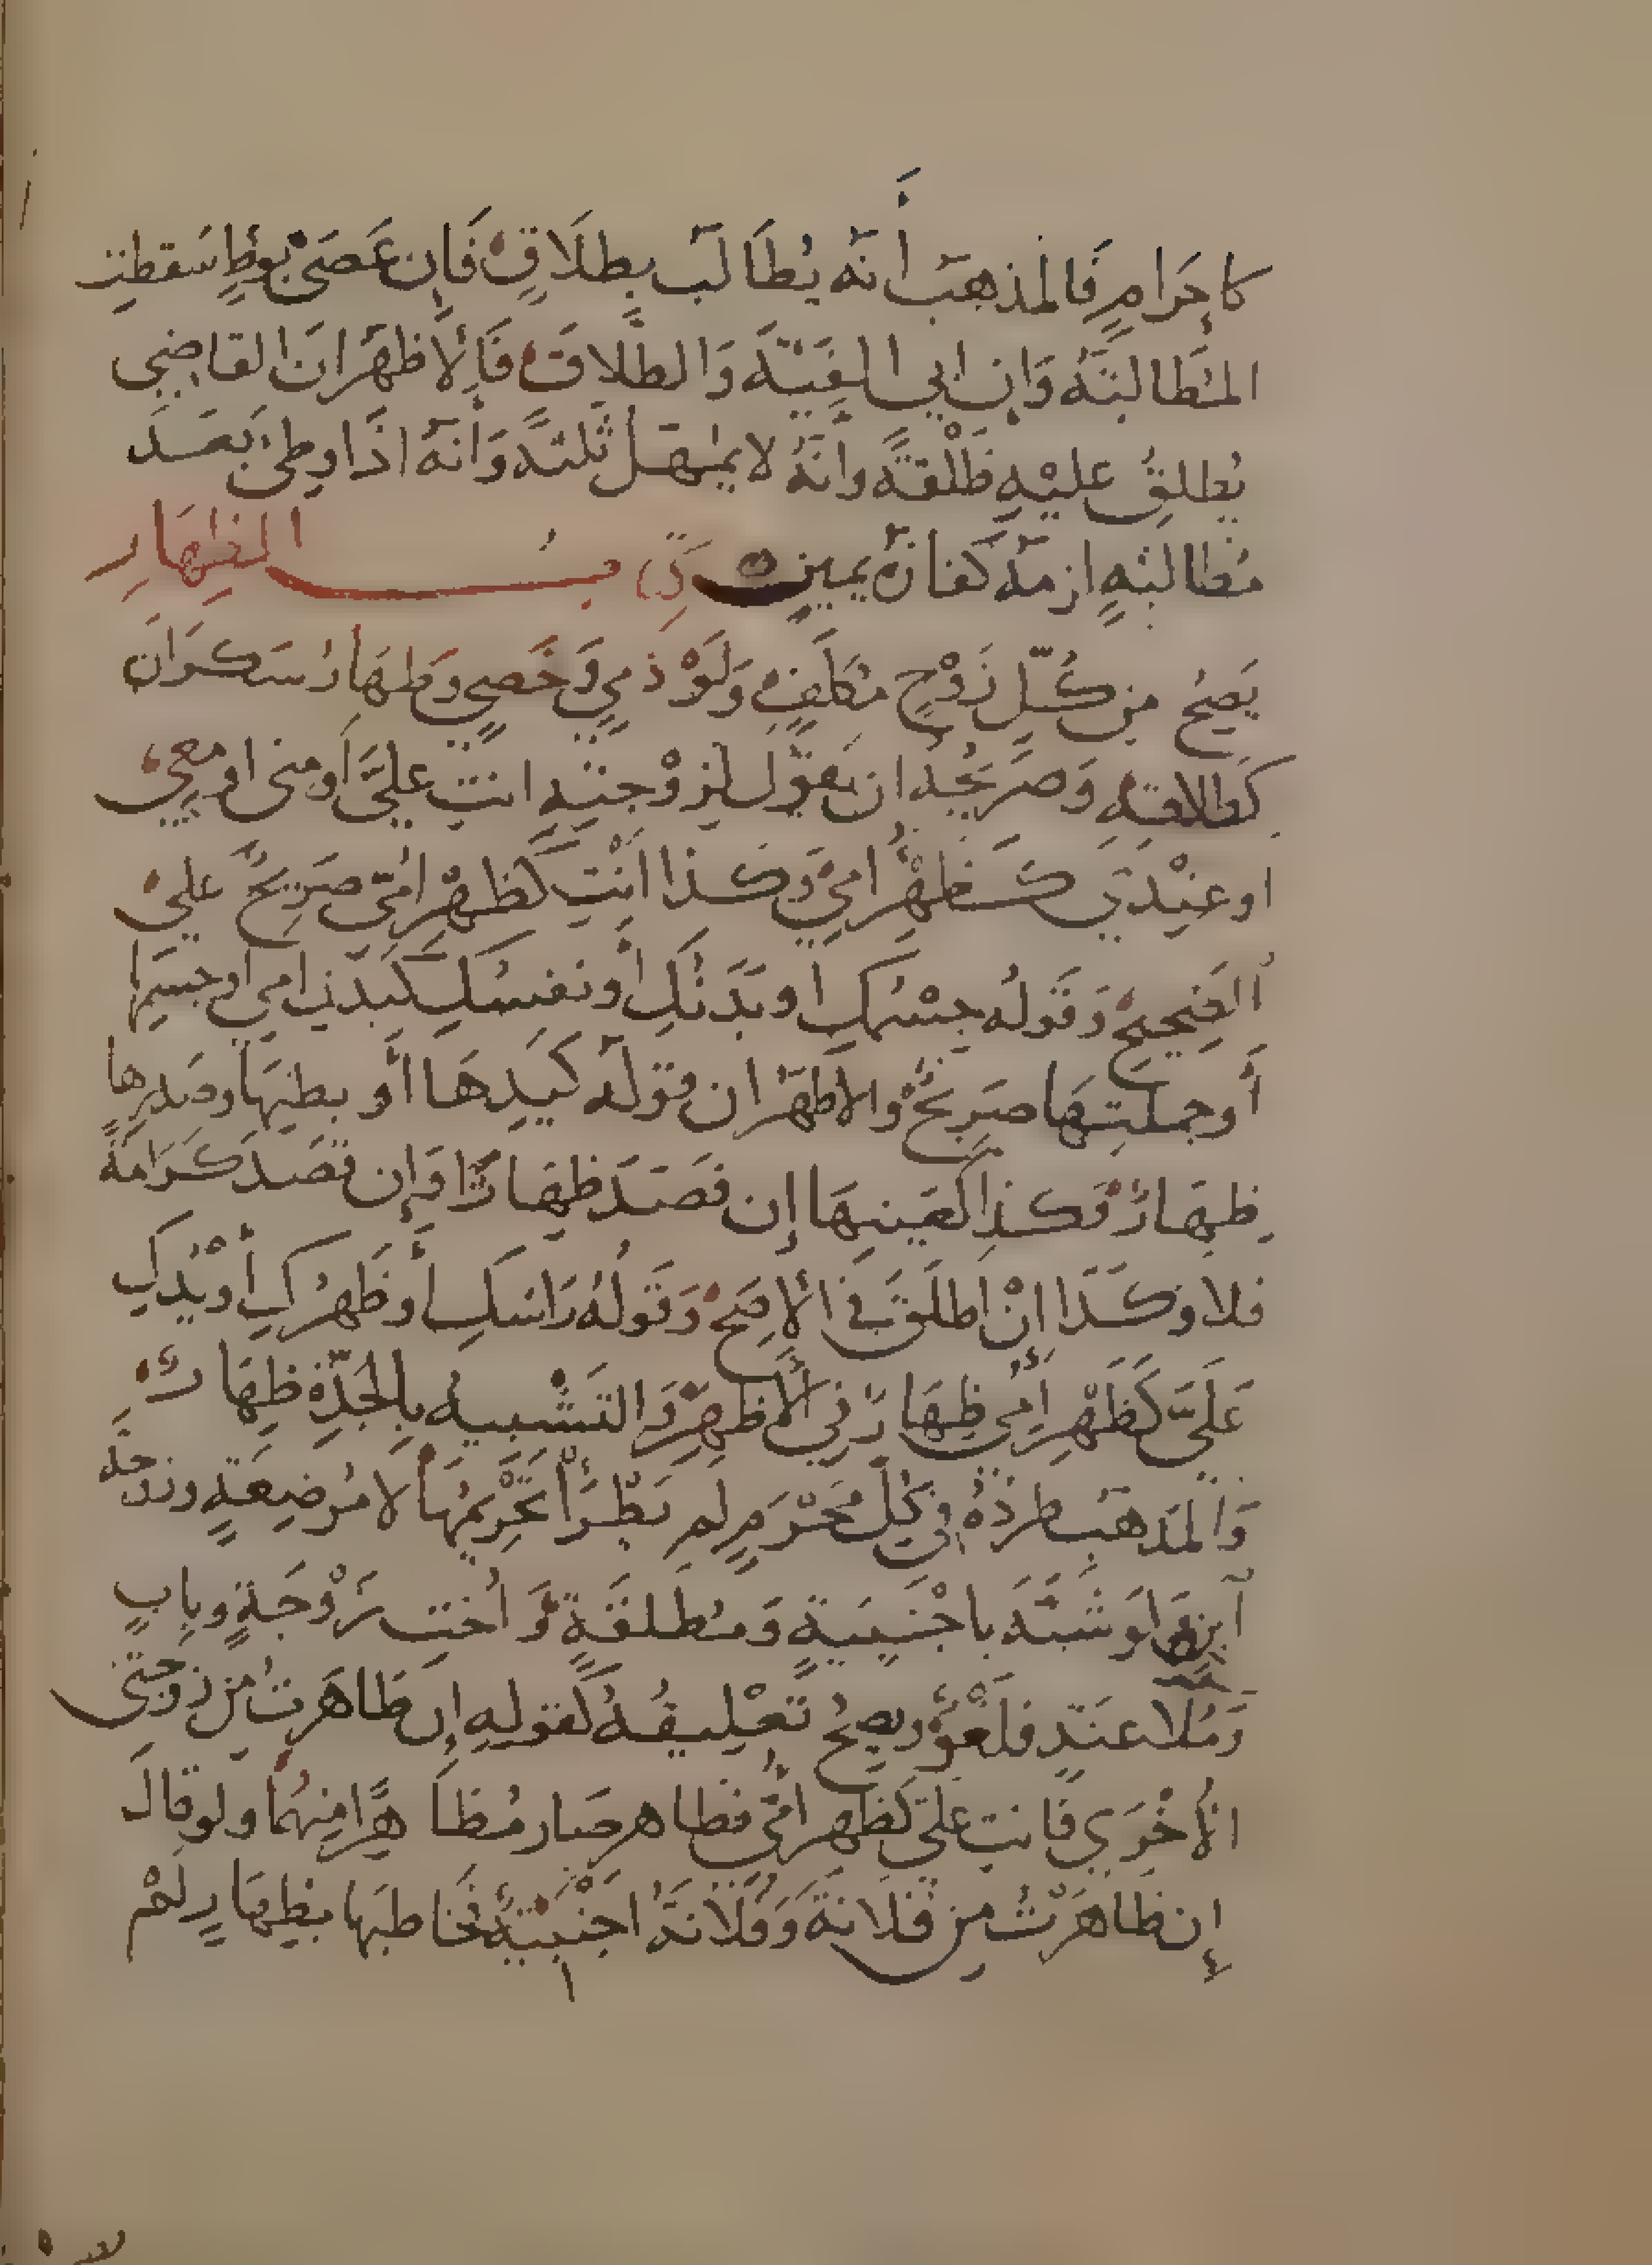 كاحرام فالمذهب أنه يطالب بطلاق فإن عصى بوطئ سقطت
المطالبة وإن ابي الفيئة والطلاق فالأظهر ان القاضي
يطلق عليه طلقة وأنه لا يمهل ثلثة وأنه اذا وطئ بعد
مطالبته لزمه كفارة يمين كتاب الظهار
يصح من كل زوج مكلف ولو ذمي وخصي وظهار سكران
كطلاقه وصريحه ان يقول لزوجته انت علي أو مني او معي
او عندي كظهر امي وكذا انت كظهر امي صريح علي
الصحيح وقوله جسمك او بدنك أو نفسك كبدن امي او جسمها
أو جملتها صريح والاظهر ان قوله كيدها أو بطنها وصدرها
ظهار وكذا كعينها إن قصد ظهارا وإن قصد كرامة
فلا وكذا إن اطلق في الأصح وقوله راسك أو ظهرك أو يدك
علي كظهر أمي ظهار في الأظهر والتشبيه بالجدة ظهار
والمذهب طرده في كل محرم لم يطرأ تحريمها لا مرضعة وزوجة
ابن ولو شبه باجنبية ومطلقة واخت زوجة وباب
وملاعنة فلغو ويصح تعليقه كقوله إن ظاهرت من زوجتي
الأخرى فانت علي كظهر امي فظاهر صار مظاهرا منهما ولو قال
إن ظاهرت من فلانة وفلانة اجنبية فخاطبها بظهار لم